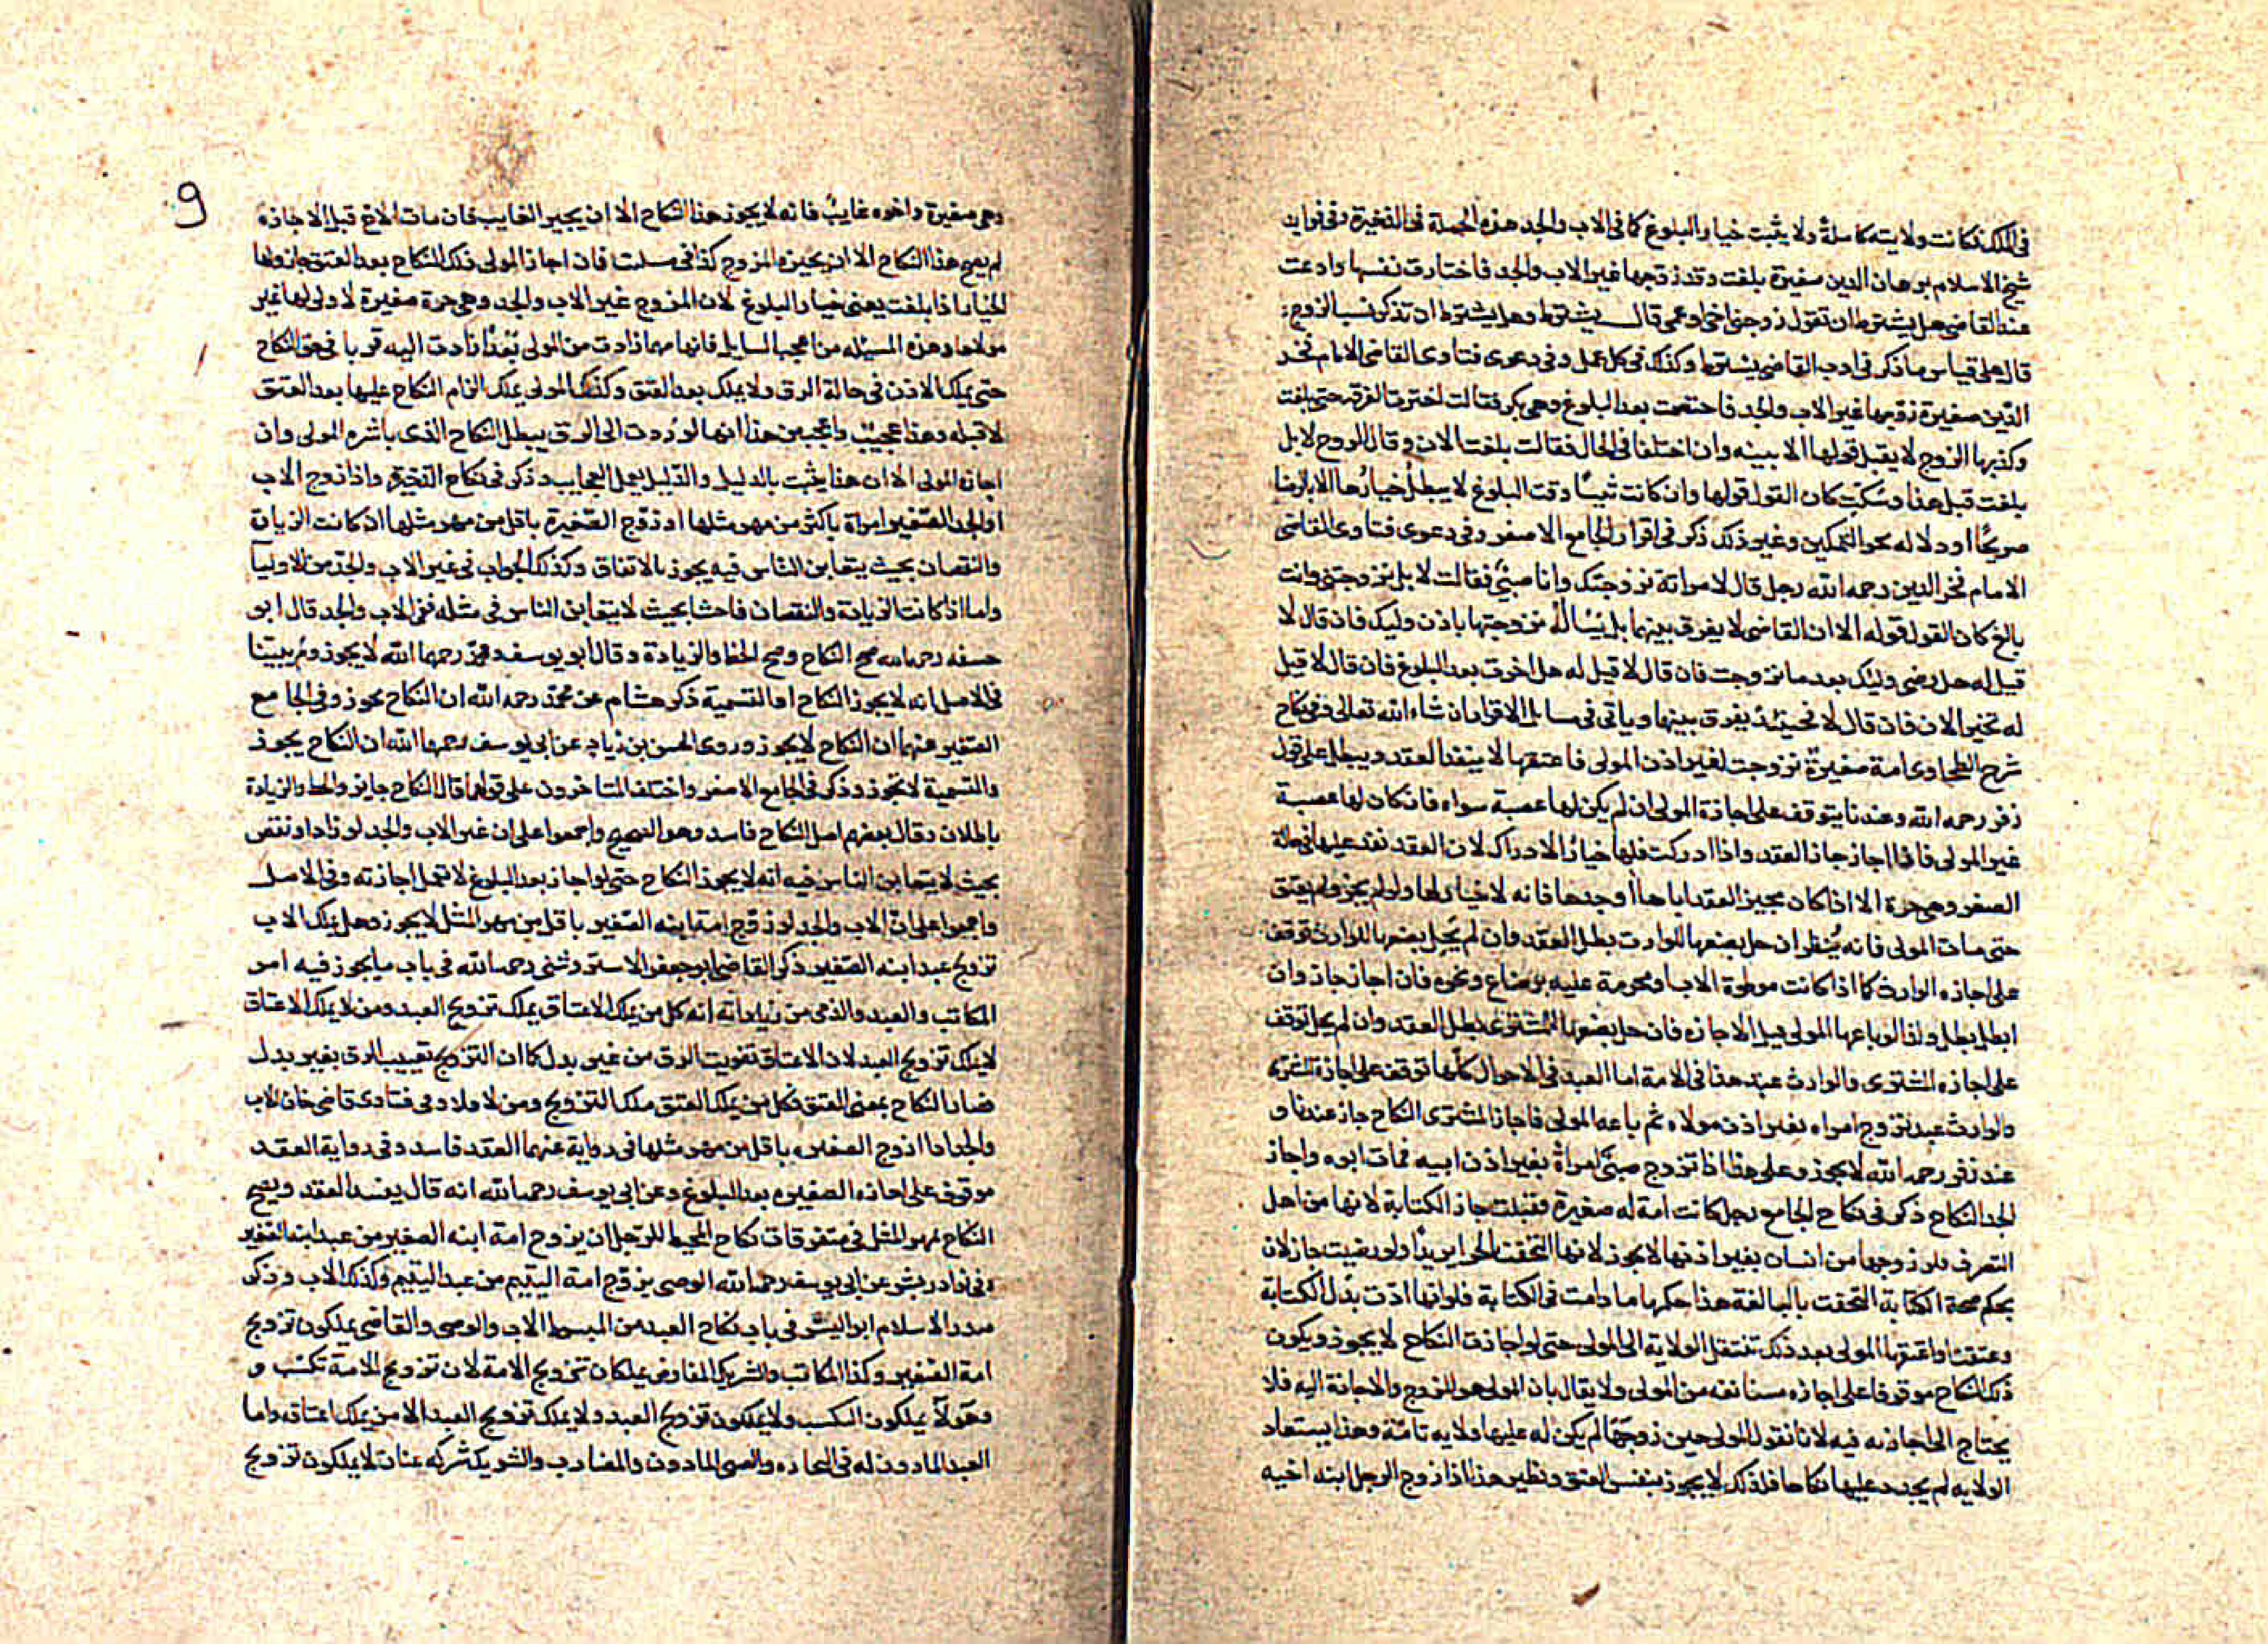 في الملك فكانت ولايته كاملة ولا يثبت خيار البلوغ كما في الاب والجد هذه الجملة في الذخيرة وفي فوايد
شيخ الاسلام برهان الدين صغيرة بلغت وقد زوجها غير الاب والجد فاختارت نفسها وادعت
عند القاضي هل يشترط ان تقول زوجني اخي او عمي قال يشترط وهل يشترط ان تذكر نسب الزوج
قال على قياس ما ذكر في ادب القاضي يشترط وكذلك في كل عمل وفي دعوى فتاوى القاضي الامام فخر
الدين صغيرة زوجها غير الاب والجد فاختصمت بعد البلوغ وهي بكر فقالت اخترت الفرقة حتى بلغت
وكذبها الزوج لا يقبل قولها الا ببينه وان اختلفا في الحال فقالت بلغت الان وقال الزوج لا بل
بلغت قبل هذا وسكت كان القول قولها وان كانت ثيبا وقت البلوغ لا يبطل خيارها الا بالرضا
صريحا او دلاله نحو التمكين وغير ذلك ذكر في اقرار الجامع الاصغر وفي دعوى فتاوى القاضي
الامام فخر الدين رحمه الله رجل قال لامراته تزوجتك وانا صبي فقالت لا بل تزوجتني وانت
بالغ كان القول قوله الا ان القاضي لا يفرق بينهما بل يسأله تزوجتها باذن وليك فان قال لا
قيل له هل رضي وليك بعد ما تزوجت فان قال لا قيل له هل اجزت بعد البلوغ فان قال لا قيل
له تجيز الان فان قال لا فحينئذ يفرق بينهما وياتي في مسايل الاقرار ان شاء الله تعالى وفي نكاح
شرح الطحاوي امة صغيرة تزوجت لغير اذن المولى فاعتقها لا ينفذ العقد ويبطل على قول
زفر رحمه الله وعندنا يتوقف على اجازة المولى ان لم يكن لها عصبة سواه فان كان لها عصبة
غير المولى فاذا اجاز جاز العقد واذا ادركت فلها خيار الادراك لان العقد نفذ عليها في حالة
الصغر وهي حرة الا اذا كان مجيز العقد اباها او جدها فانه لا خيار لها ولو لم يجز ولم يعتق
حتى مات المولى فانه ينظر ان حل بضعها للوارث بطل العقد وان لم يحل بضعها للوارث توقف
على اجازه الوارث كما اذا كانت موطوة الاب او محرمة عليه برضاع ونحوه فان اجاز جاز وان
ابطل بطل وكذا لو باعها المولى قبل الاجازه فان حل بضعها للمشتري بطل العقد وان لم يحل توقف
على اجازه المشتري والوارث عبد هذا في الامة اما العبد في الاحوال كلها توقف على اجازة المشتري
والوارث عبد تزوج امراه بغير اذن مولاه ثم باعه المولى فاجاز المشتري النكاح جاز عندنا و
عند زفر رحمه الله لا يجوز وعلى هذا اذا تزوج صبي امراة بغير اذن ابيه فمات ابوه واجاز
الجد النكاح ذكر في نكاح الجامع رجل كاتب امة له صغيرة وقبلت جاز الكتابة لانها من اهل
التصرف فلو زوجها من انسان بغير اذنها لا يجوز لانها التحقت بالحراير يدا ولو رضيت جاز لان
بحكم صحة الكتابة التحقت بالبالغة هذا حكمها ما دامت في الكتابة فلو انها ادت بدل الكتابة
وعتقت او اعتقها المولى بعد ذلك تنتقل الولايه الى المولى حتى لو اجازت النكاح لا يجوز ويكون
ذلك النكاح موقوفا على اجازه مستانفه من المولى ولا يقال بان المولى هو المزوج والاجازة اليه فلا
يحتاج الى اجازته فيه لانا نقول المولى حين زوجها لم يكن له عليها ولايه تامة وهذا يستفاد
الولايه لم يجدد عليها نكاحا فلذلك لا يجوز بنفس العتق ونظير هذا اذا زوج الرجل ابنه اخيه
9
وهي صغيرة واخوه غايب فانه لا يجوز هذا النكاح الا ان يجيز الغايب فان مات الاخ قبل الاجازه
لم يصح هذا النكاح الا ان يجيزه المزوج كذا في مسلت فان اجاز المولى ذلك النكاح بعد العتق جاز ولها
الخيار اذا بلغت يعني خيار البلوغ لان المزوج غير الاب والجد وهي حرة صغيرة لا ولي لها غير
مولاها وهذه المسئله من اعجب المسايل فانها مهما زادت من المولى بعدا زادت اليه قربا في حق النكاح
حتى يملك الاذن في حالة الرق ولا يملك بعد العتق وكذلك المولى يملك الزام النكاح عليها بعد العتق
لا قبله وهذا عجيب واعجب من هذا انها لو ردت الى الرق يبطل النكاح الذي باشره المولى وان
اجازه المولى الا ان هذا يثبت بالدليل والدليل يعمل العجايب وذكر في نكاح الذخيرة واذا زوج الاب
او الجد الصغير امراة باكثر من مهر مثلها او زوج الصغيرة باقل من مهر مثلها ان كانت الزيادة
والنقصان بحيث يتغابن الناس فيه يجوز بالاتفاق وكذلك الجواب في غير الاب والجد من الاوليا
واما اذا كانت الزيادة والنقصان فاحشا بحيث لا يتغابن الناس في مثله ففي الاب والجد قال ابو
حنيفه رحمه الله صح النكاح وصح الحط والزيادة وقال ابو يوسف ومحمد رحمهما الله لا يجوز ولم يبينا
في الاصل انه لا يجوز النكاح او التسمية ذكر هشام عن محمد رحمه الله ان النكاح يجوز وفي الجامع
الصغير عنهما ان النكاح لا يجوز وروى الحسن بن زياد عن ابي يوسف رحمهما الله ان النكاح يجوز
والتسمية لا تجوز وذكر في الجامع الاصغر واختلف المتاخرون على قولهما قال النكاح جايز والحط والزيادة
باطلان وقال بعضهم اصل النكاح فاسد وهو الصحيح واجمعوا على ان غير الاب والجد لو زاد او نقص
بحيث لا يتغابن الناس فيه انه لا يجوز النكاح حتى لو اجاز بعد البلوغ لا تعمل اجازته وفي الاصل
واجمعوا على ان الاب والجد لو زوج امة ابنه الصغير باقل من مهر المثل لا يجوز وهل يملك الاب
تزويج عبد ابنه الصغير ذكر القاضي ابو جعفر الاستروشني رحمه الله في باب ما يجوز فيه امر
المكاتب والعبد والذمي من زياداته انه كل من يملك الاعتاق يملك تزويج العبد ومن لا يملك الاعتاق
لا يملك تزويج العبد لان الاعتاق تفويت الرق من غير بدل كما ان التزويج تعييب الرق بغير بدل
فصار النكاح بمعنى العتق فكل من يملك العتق ملك التزويج ومن لا فلا وفي فتاوى قاضي خان الاب
والجد اذا زوج الصغيره باقل من مهر مثلها في رواية عنهما العقد فاسد وفي رواية العقد
موقوف على اجازه الصغيره بعد البلوغ وعن ابي يوسف رحمه الله انه قال يفسد العقد ويصح
النكاح بمهر المثل في متفرقات نكاح المحيط للرجل ان يزوج امة ابنه الصغير من عبد ابنه الصغير
وفي نوادر بشر عن ابي يوسف رحمه الله الوصي يزوج امة اليتيم من عبد اليتيم وكذلك الاب وذكر
صدر الاسلام ابو اليسر في باب نكاح العبد من المبسوط الاب والوصي والقاضي يملكون تزويج
امة الصغير وكذا المكاتب والشريك المفاوض يملكان تزويج الامة لان تزويج الامة تكسب و
هولآ يملكون الكسب ولا يملكون تزويج العبد ولا يملك تزويج العبد الا من يملك اعتاقه واما
العبد الماذون له في التجاره والصبي الماذون والمضارب والشريك شركه عنان لا يملكون تزويج